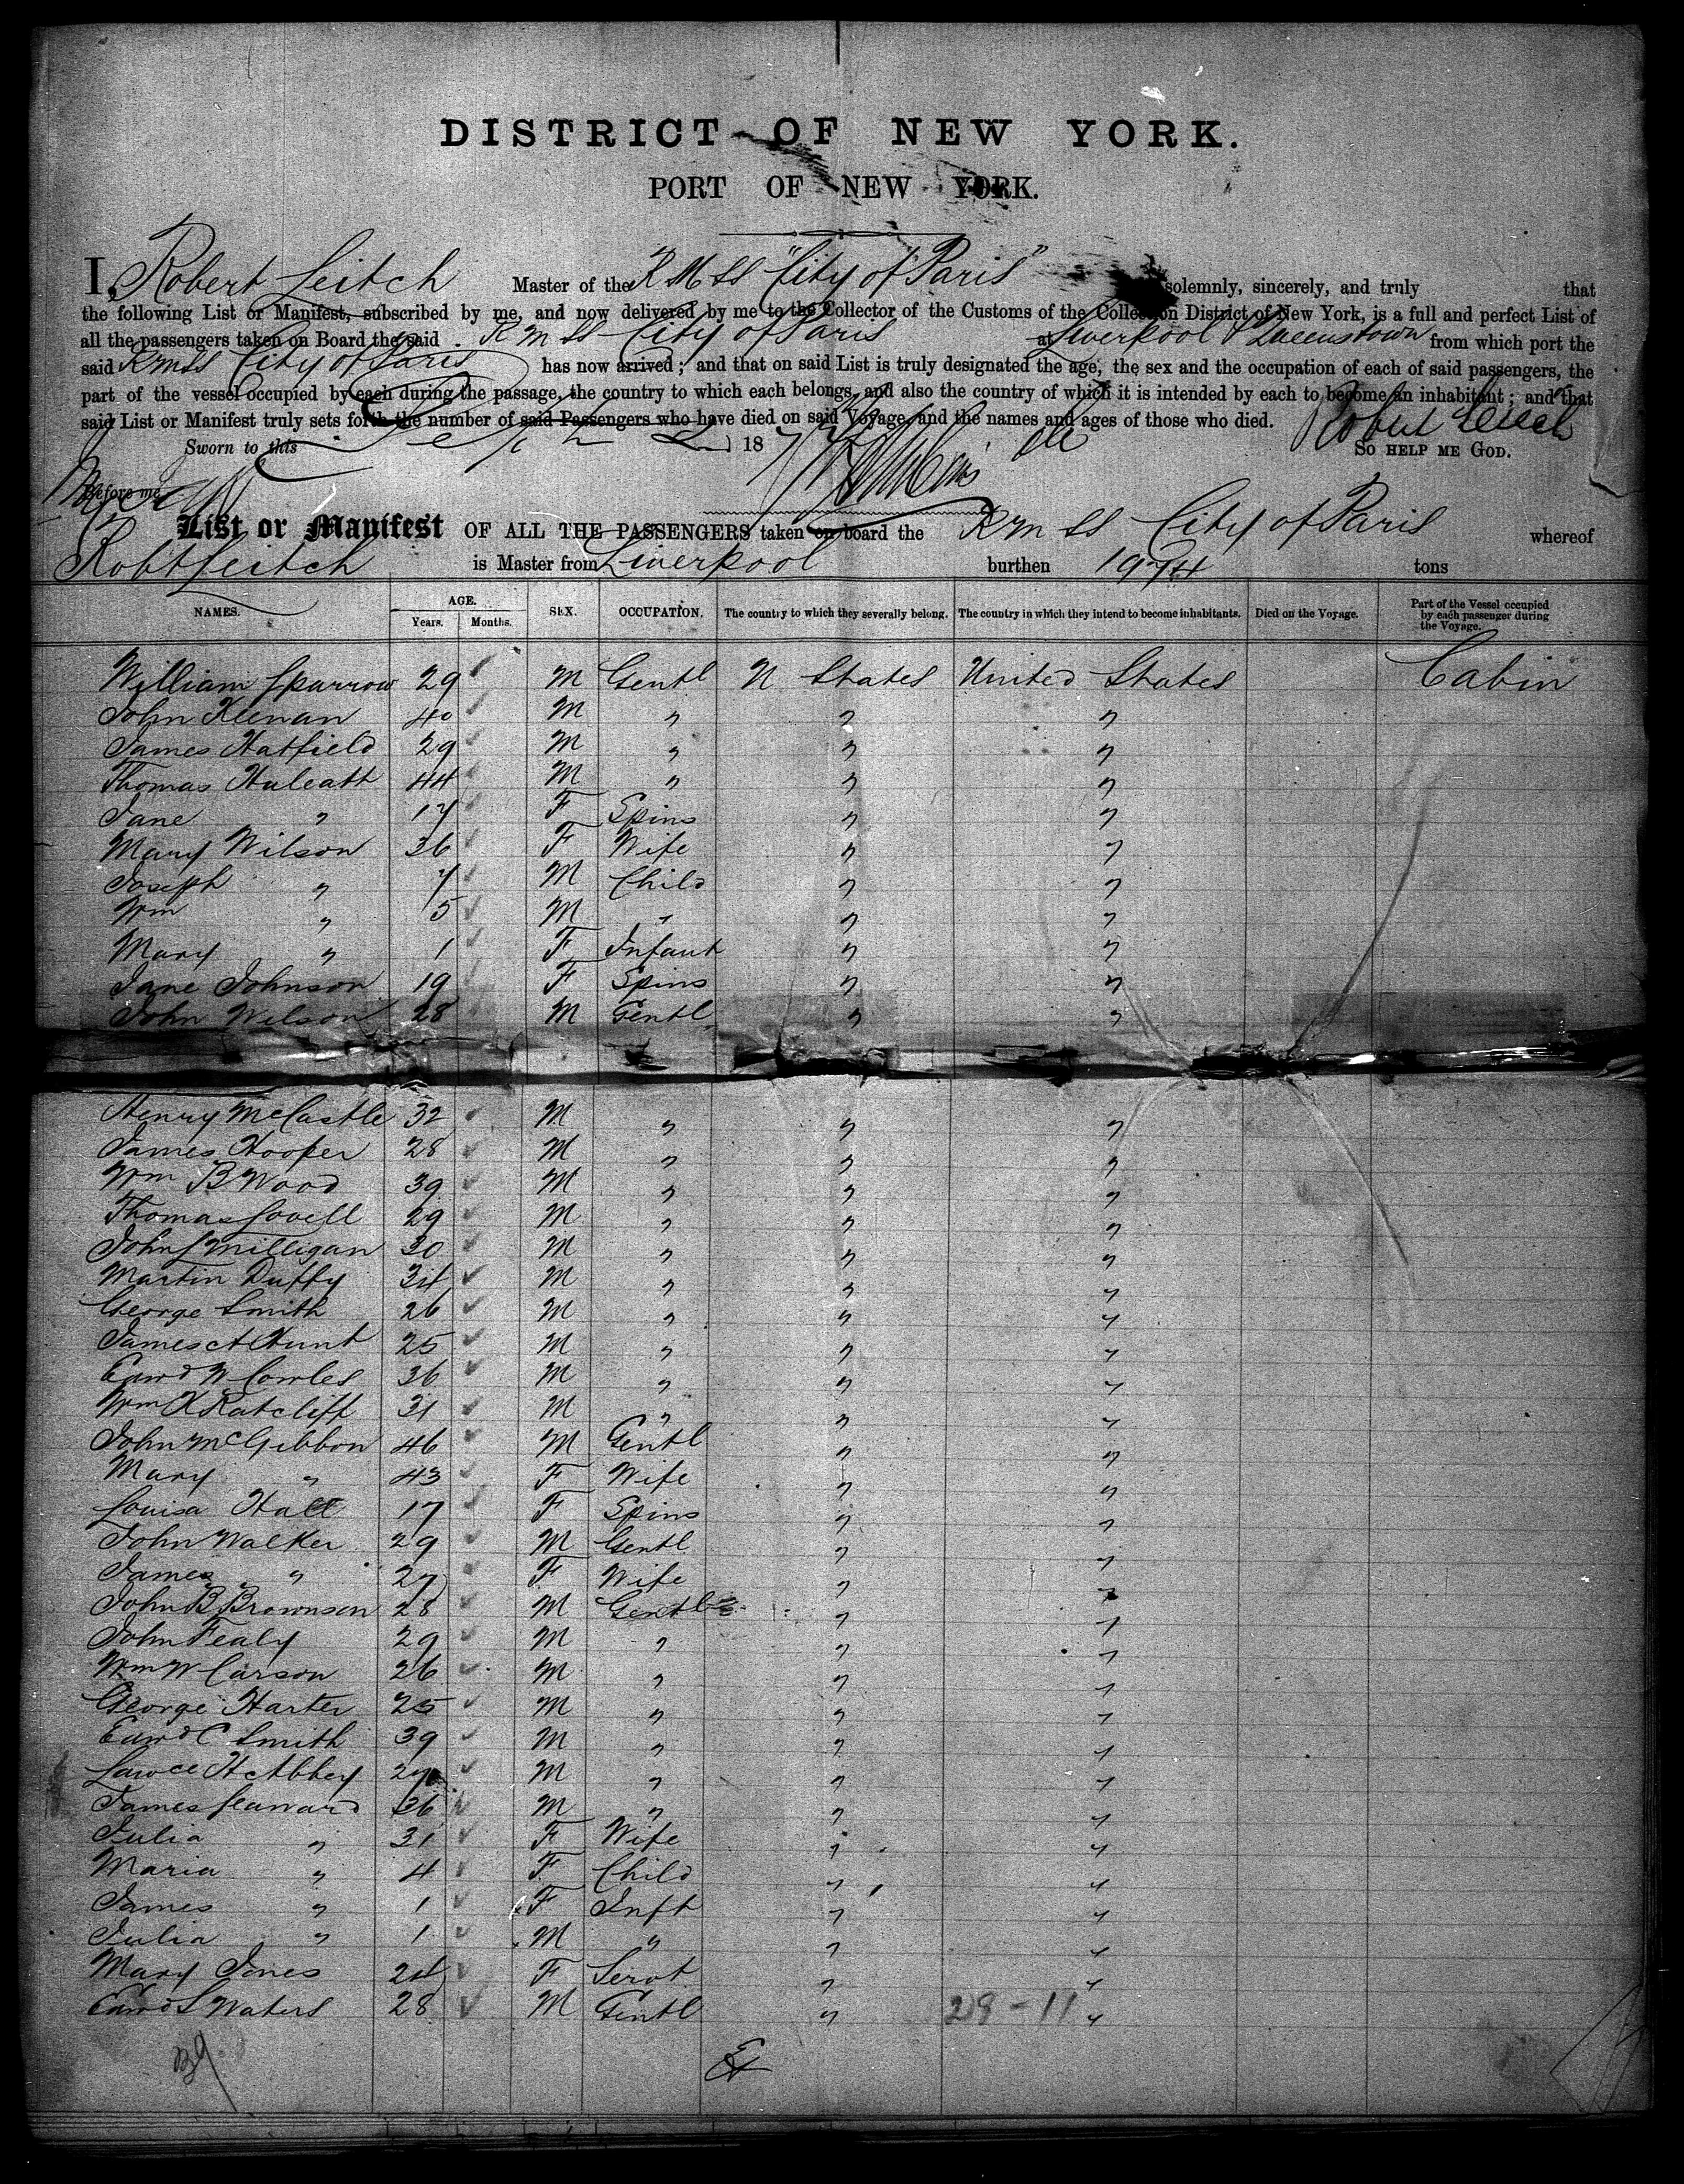 DISTRICT OF NEW YORK.
PORT OF NEW YORK.
I, Robert Leitch Master of the R M SS "City of Paris" solemnly, sincerely, and truly that
the following List or Manifest, subscribed by me, and now delivered by me to the Collector of the Customs of the Collection District of New York, is a full and perfect List of
all the passengers taken on Board the said R M SS City of Paris at Liverpool & Queenstown from which port the
said RMSS City of Paris has now arrived; and that on said List is truly designated the age, the sex and the occupation of each of said passengers, the
part of the vessel occupied by each during the passage, the country to which each belongs, and also the country of which it is intended by each to become an inhabitant; and that
said List or Manifest truly sets forth the number of said Passengers who have died on said Voyage, and the names and ages of those who died. Robert Leitch
Sworn to this 18 SO HELP ME GOD.
Before me
List or Manifest OF ALL THE PASSENGERS taken on board the R M SS City of Paris whereof
Robt Leitch is Master from Liverpool burthen 1974 tons
NAMES. AGE. Years. Months. SEX. OCCUPATION. The country to which they severally belong. The country in which they intend to become inhabitants. Died on the Voyage. Part of the Vessel occupied by each passenger during the Voyage.
William Sparrow 29 M Gentl U States United States Cabin
John Keenan 40 M " " "
James Hatfield 29 M " " "
Thomas Huleatt 44 M " " "
Jane " 17 F Spins " "
Mary Wilson 36 F Wife " "
Joseph " 7 M Child " "
Wm " 5 M " " "
Mary " 1 F Infant " "
Jane Johnson 19 F Spins " "
John Wilson 28 M Gentl " "
Henry McCastle 32 M " " "
James Hooper 28 M " " "
Wm B Wood 39 M " " "
Thomas Lovell 29 M " " "
John S Milligan 30 M " " "
Martin Duffy 34 M " " "
George Smith 26 M " " "
James A Hunt 25 M " " "
Edwd W Cowles 36 M " " "
Wm H Ratcliff 31 M " " "
John McGibbon 46 M Gentl " "
Mary " 43 F Wife " "
Louisa Hall 17 F Spins " "
John Walker 29 M Gentl " "
James " 27 F Wife " "
John B Brownson 28 M Gentl " "
John Fealy 29 M " " "
Wm W Carson 26 M " " "
George Harter 25 M " " "
Edwd C Smith 39 M " " "
Lawce H Abbey M " " "
James Seaward 36 M " " "
Julia " 31 F Wife " "
Maria " 4 F Child " "
James " 1 F Inft " "
Julia " 1 M " " "
Mary Jones 24 F Servt " "
Edwd S Waters 28 M Gentl " 28-11 "